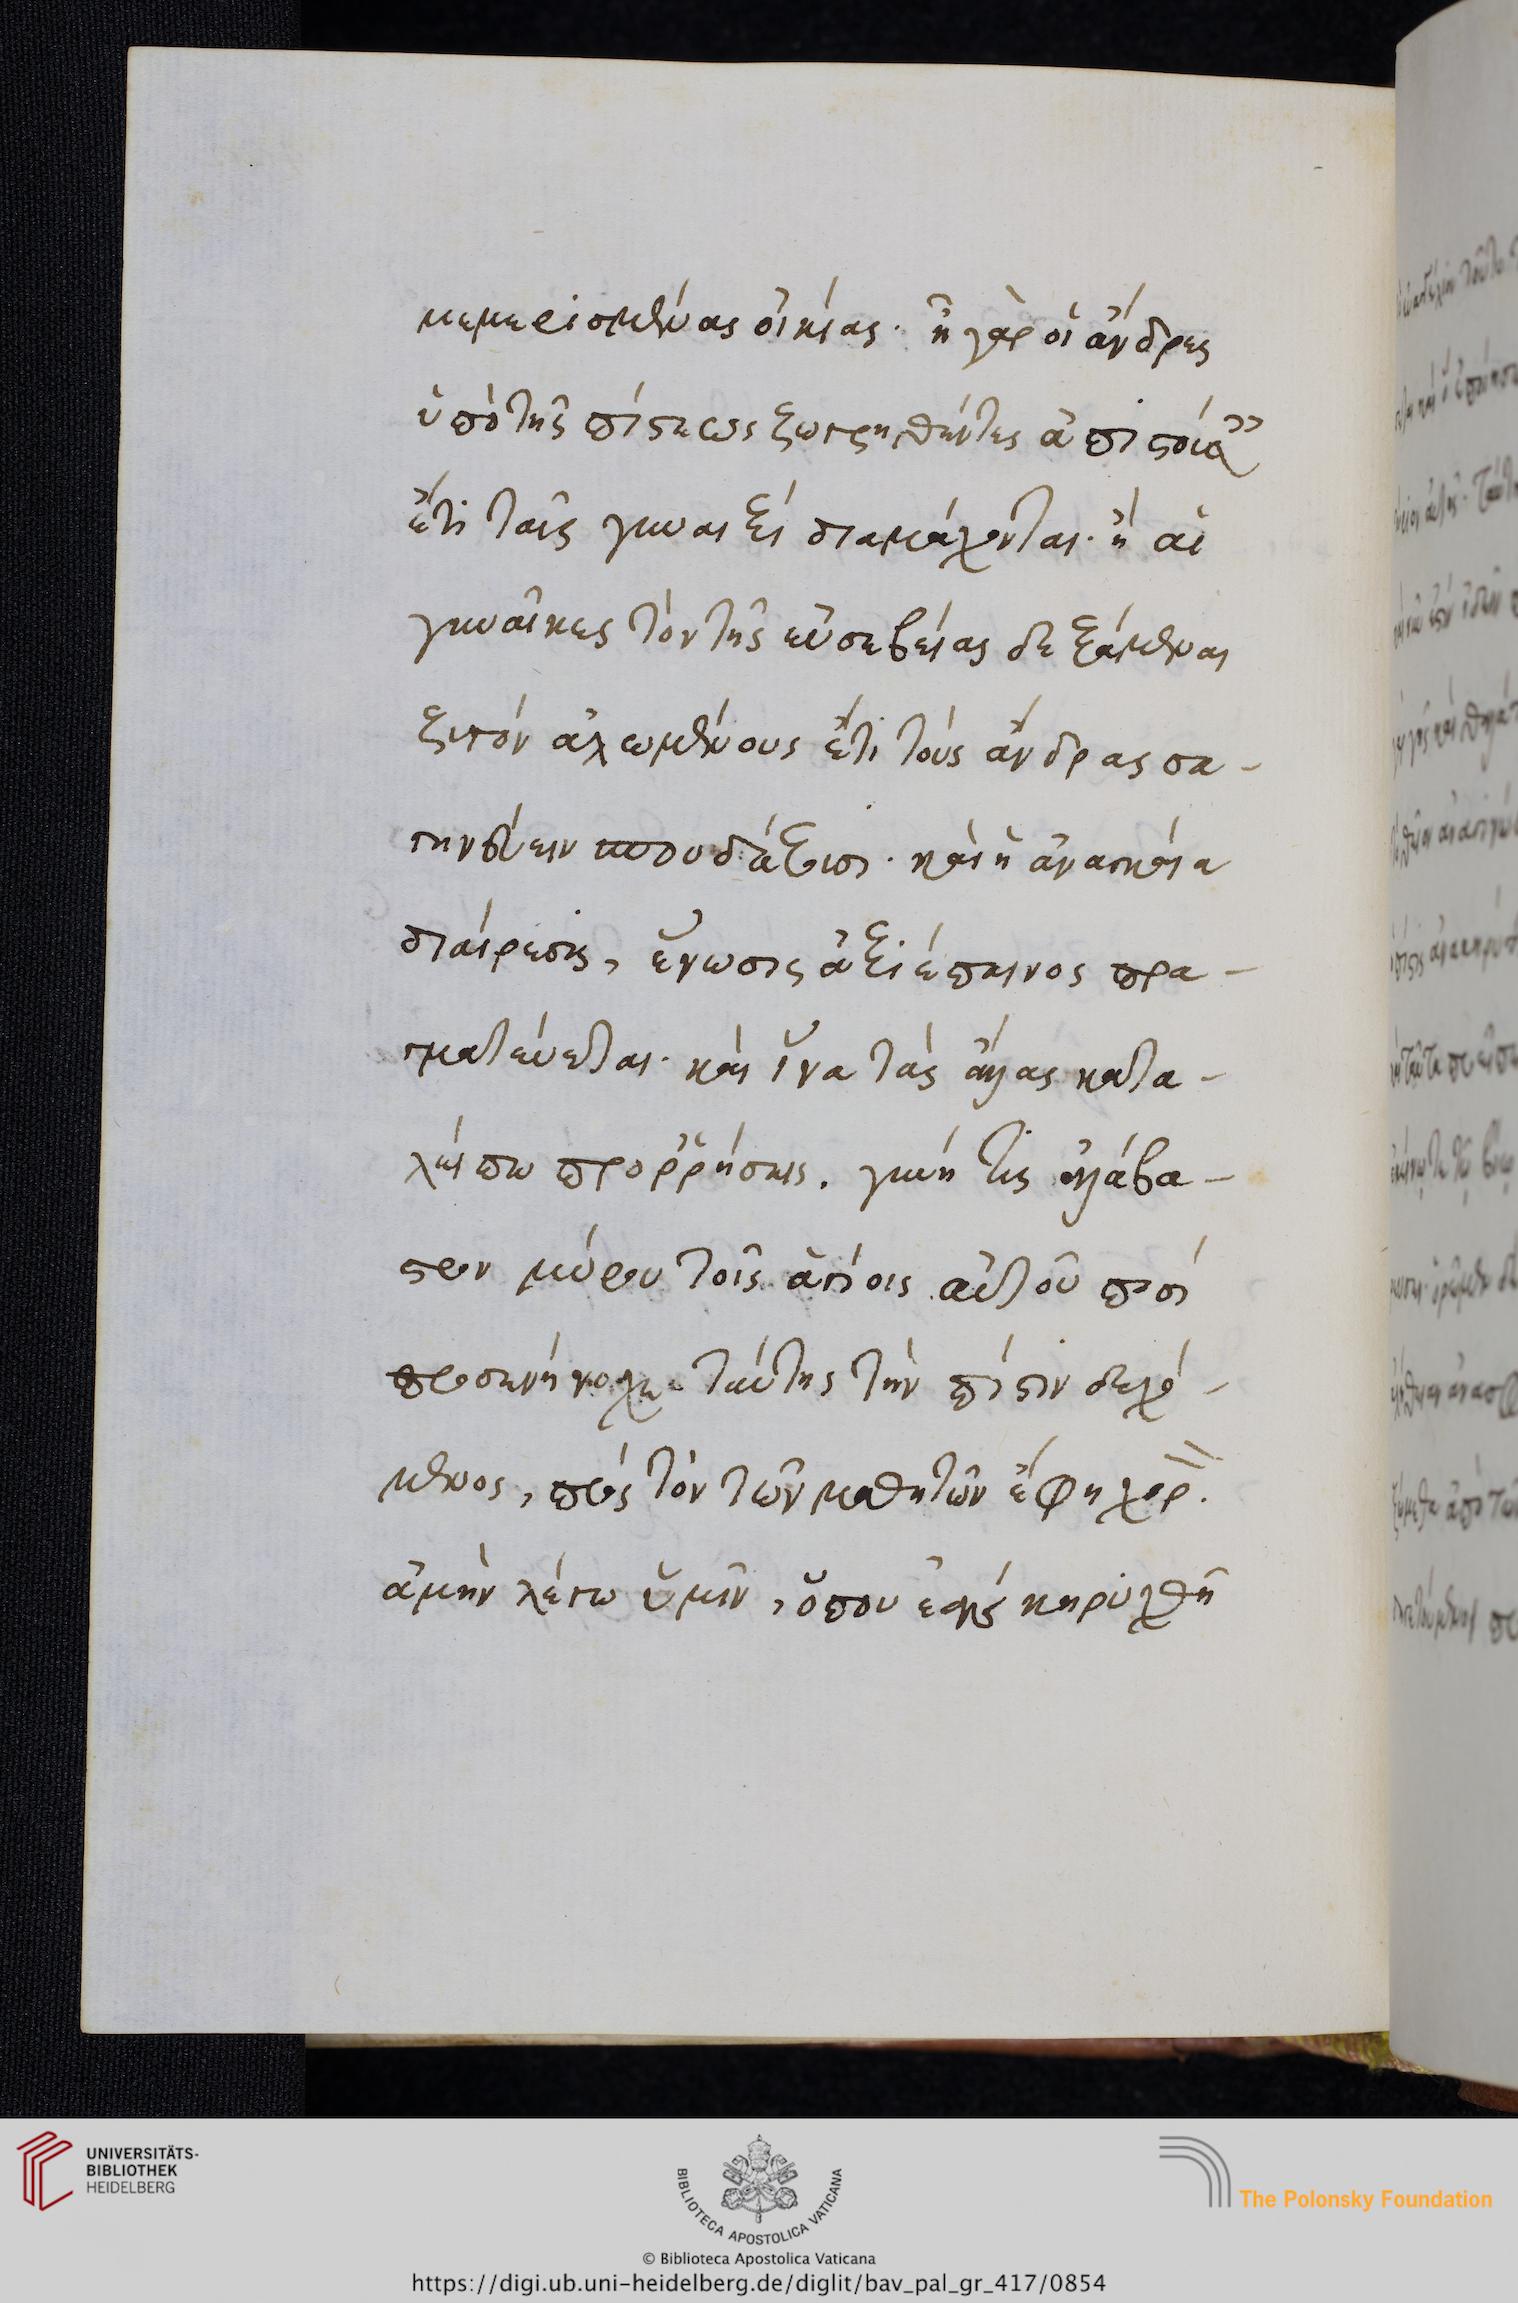 μεμερισμένας οἰκίας· ἢ γὰρ οἱ ἄνδρες
ὑπὸ τῆς πίστεως ζωγρηθέντες ἀπιστού
ἔτι ταῖς γυναιξὶ διαμάχονται· ἢ αἱ
γυναῖκες τὸν τῆς εὐσεβείας δεξάμεναι
ζυγὸν ἀχωμένους ἔτι τοὺς ἄνδρας σα-
γηνεύειν σπουδάζουσι· καὶ ἡ ἀναγκαία
διαίρεσις, ἕνωσις ἀξιέπαινος πρα-
γματεύεται· καὶ ἵνα τὰς ἄλλας κατα-
λείπω προρρήσεις, γυνή τις ἀλάβα-
στρον μύρου τοῖς ἁγίοις αὐτοῦ ποσὶ
προσενήνοχε· ταύτης τὴν πίστιν δεχό-
μενος, πρὸς τὸν τῶν μαθητῶν ἔφη χορ.
ἀμὴν λέγω ὑμῖν, ὅπου ἐὰν κηρυχθῇ
UNIVERSITÄTS-
BIBLIOTHEK
HEIDELBERG
BIBLIOTECA APOSTOLICA VATICANA
The Polonsky Foundation
© Biblioteca Apostolica Vaticana
https://digi.ub.uni-heidelberg.de/diglit/bav_pal_gr_417/0854